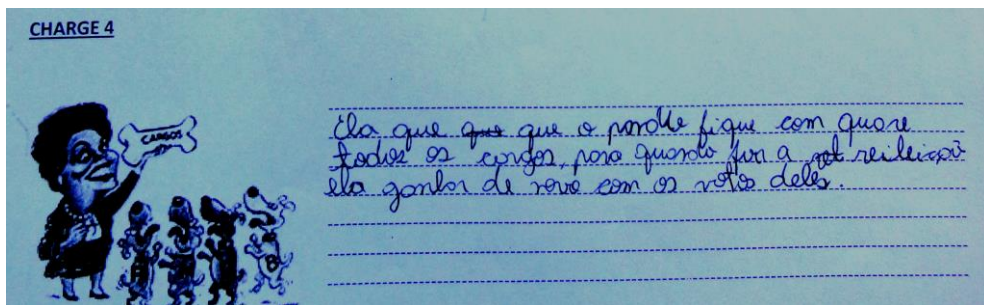 CHARGE 4
CARGOS
Ela que que que o fique com quase
todos os cargos, para quando for a reileição
ela ganhar de novo com os votos deles.